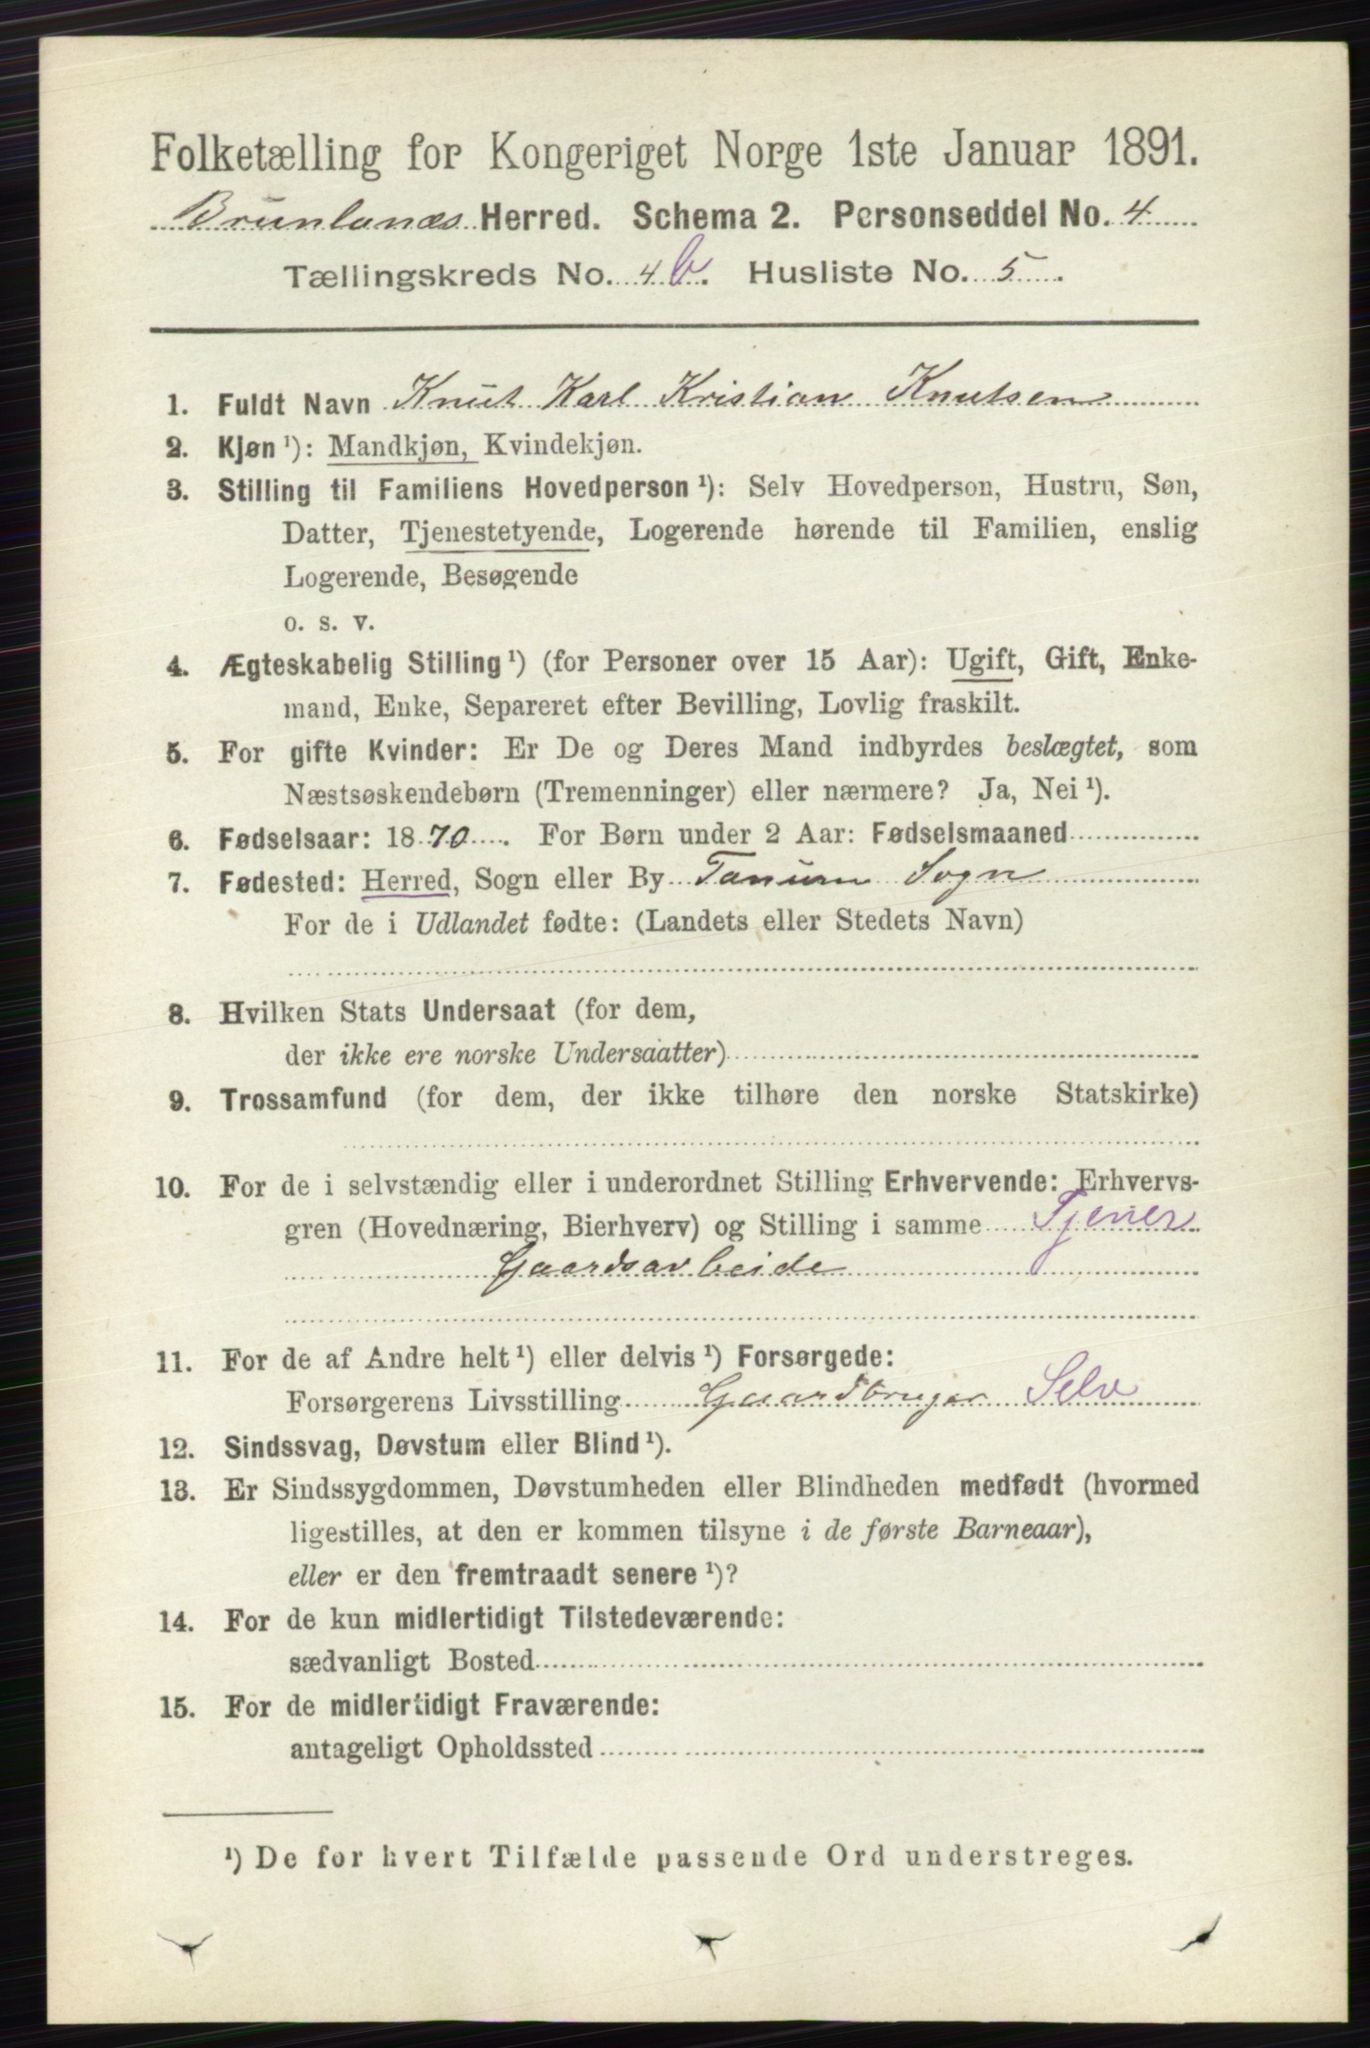 Folketælling for Kongeriget Norge 1ste Januar 1891.
Brunlanæs Herred. Schema 2. Personseddel No. 4
Tællingskreds No. 4 b. Husliste No. 5.
1. Fuldt Navn Knut Karl Kristian Knutsen
2. Kjøn ¹): Mandkjøn, Kvindekjøn.
3. Stilling til Familiens Hovedperson ¹): Selv Hovedperson, Hustru, Søn,
Datter, Tjenestetyende, Logerende hørende til Familien, enslig
Logerende, Besøgende
o. s. v.
4. Ægteskabelig Stilling ¹) (for Personer over 15 Aar): Ugift, Gift, Enke-
mand, Enke, Separeret efter Bevilling, Lovlig fraskilt.
5. For gifte Kvinder: Er De og Deres Mand indbyrdes beslægtet, som
Næstsøskendebørn (Tremenninger) eller nærmere? Ja, Nei ¹).
6. Fødselsaar: 1870. For Børn under 2 Aar: Fødselsmaaned
7. Fødested: Herred, Sogn eller By Tanum Sogn
For de i Udlandet fødte: (Landets eller Stedets Navn)
8. Hvilken Stats Undersaat (for dem,
der ikke ere norske Undersaatter)
9. Trossamfund (for dem, der ikke tilhøre den norske Statskirke)
10. For de i selvstændig eller i underordnet Stilling Erhvervende: Erhvervs-
gren (Hovednæring, Bierhverv) og Stilling i samme Tjener
Gaardsarbeide
11. For de af Andre helt ¹) eller delvis ¹) Forsørgede:
Forsørgerens Livsstilling Gaardbruger Selv
12. Sindssvag, Døvstum eller Blind ¹).
13. Er Sindssygdommen, Døvstumheden eller Blindheden medfødt (hvormed
ligestilles, at den er kommen tilsyne i de første Barneaar),
eller er den fremtraadt senere ¹)?
14. For de kun midlertidigt Tilstedeværende:
sædvanligt Bosted
15. For de midlertidigt Fraværende:
antageligt Opholdssted
¹) De for hvert Tilfælde passende Ord understreges.